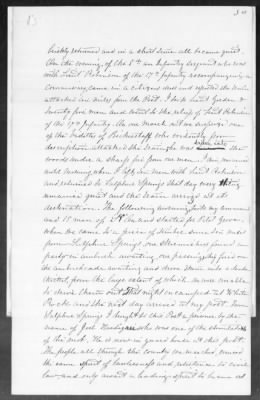 briskly returned and in a short time all became quiet.
On the evening of the 8th an Infantry Sergeant who was
with Lieut Robinson of the 17th Infantry accompanying a
Commissary came in a citizens dress and reported the train
attacked six miles from the Post. I took Lieut Graden &
Twenty five men and went to the relief of Lieut Robinson
of the 17th Infantry. As we moved out we surprised one
of the videttes of Bickerstaff who evidently from
description attacked the train, he was
woods under a sharp fire from our men. I then marched
until morning when I fell in with Lieut Robinson
and returned to Sulphur Springs that day every thing
remained quiet and the train arrived at its
destination. The following morning took my own
and 15 men of and started for Pilot Grove
when we came to a piece of timber some ten miles
from Sulphur Springs our skirmishers found a
party in ambush awaiting our passing they fired on
the ambuscade wounding and drove them into a dense
thicket, from the large extent of which we were unable
to drive them out. That night encamped at White
Rock and the next day arrived at my post. From
Sulphur Springs I brought to this Post a prisoner by the
name of Joel who was one of the
of this mob. He is now in guard house at this post.
The people all through the country we marched, evinced
the same spirit of lawlessness and resistance to civil
law and only await a leading spirit to be in at